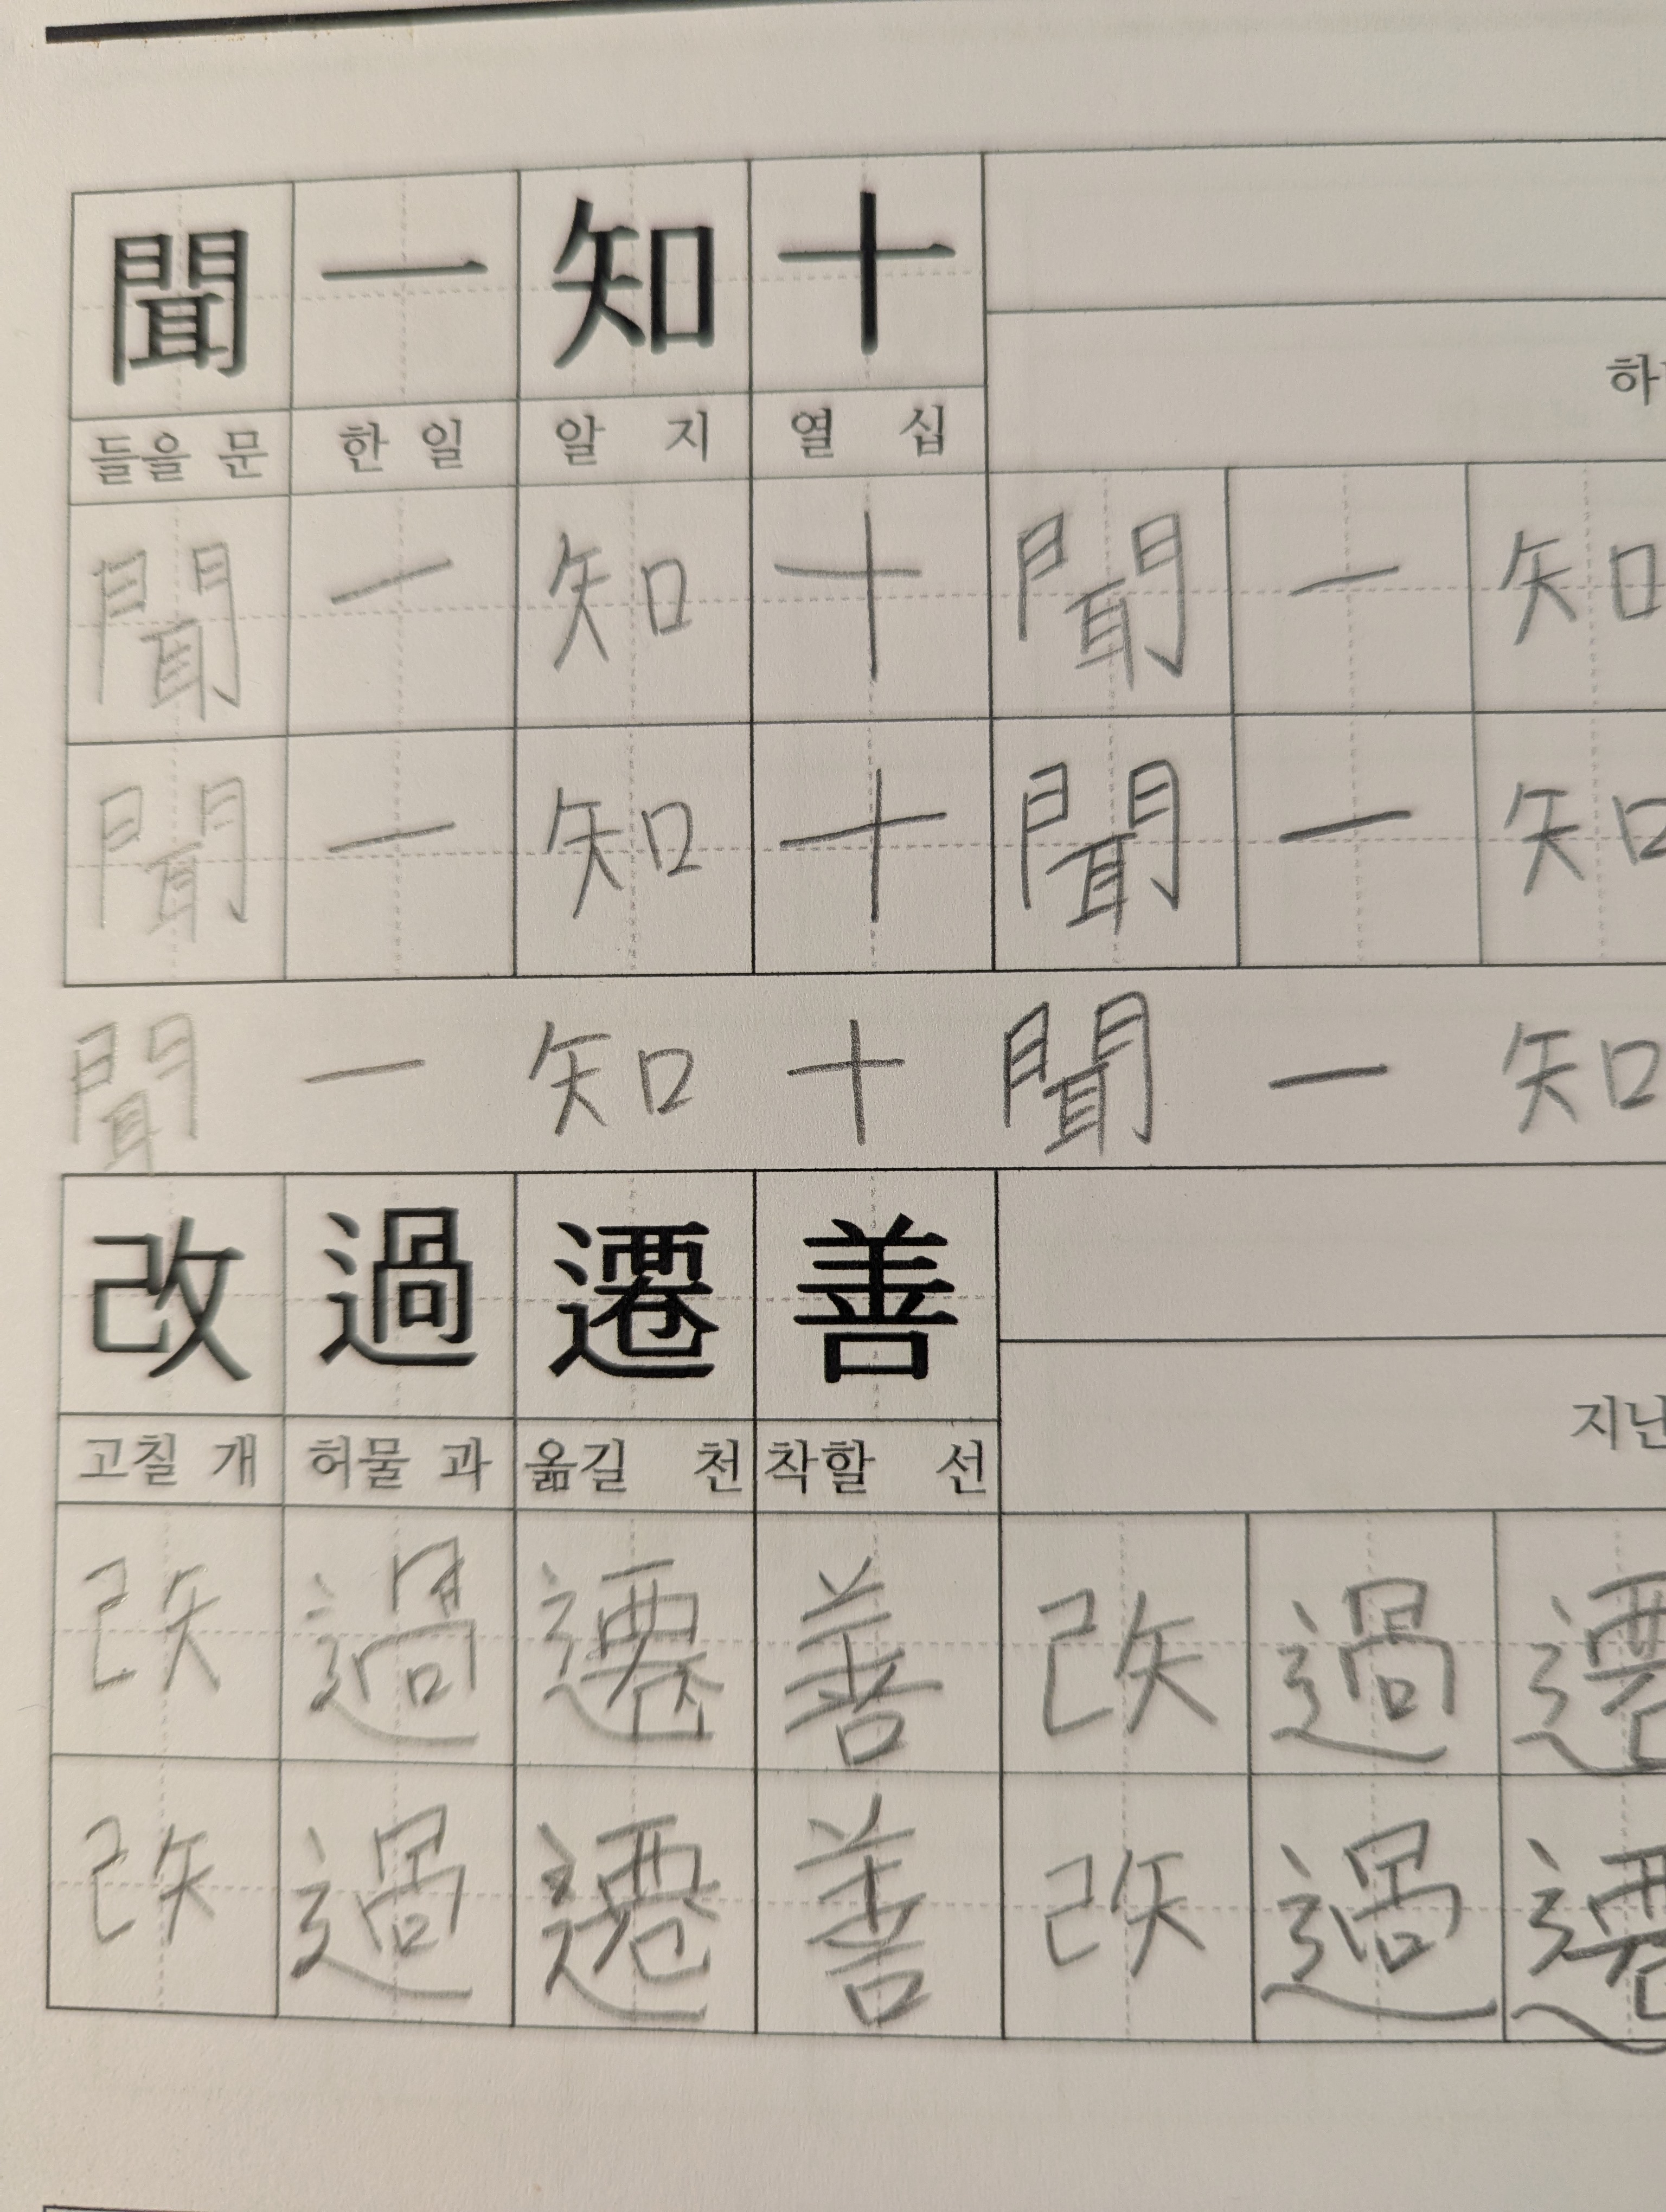 聞 一 知 十
하
들을 문 한 일 알 지 열 십
聞 一 知 十 聞 一 知
聞 一 知 十 聞 一 知
聞 一 知 十 聞 一 知
改 過 遷 善
지난
고칠 개 허물 과 옮길 천 착할 선
改 過 遷 善 改 過 遷
改 過 遷 善 改 過 遷